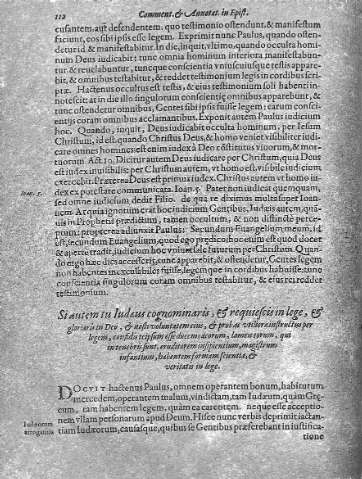 112 Comment. & Annotat. in Epist.
cusantem, aut defendentem, quo testimonio ostendunt, & manifestum
faciunt, eos sibi ipsis esse legem. Exprimit nunc Paulus, quando osten-
detur id & manifestabitur. In die, inquit, ultimo, quando occulta homi-
num Deus iudicabit: tunc omnia hominum interiora manifestabun-
tur & reuelabuntur, tuncque conscientia vniuscuiusque testis appare-
bit, & omnibus testabitur, & reddet testimonium legis in cordibus scri-
ptæ. Hactenus occultus est testis, & eius testimonium soli habenti in-
notescit: at in die illo singulorum conscientiæ omnibus apparebunt, &
tunc ostendetur omnibus, Gentes sibi ipsis fuisse legem: earum consci-
entijs coram omnibus acclamantibus. Exponit autem Paulus iudicium
hoc. Quando, inquit, Deus iudicabit occulta hominum, per Iesum
Christum, id est, quando Christus Deus, & homo veniet visibiliter iudi-
care omnes homines: est enim index à Deo constitutus viuorum, & mor-
tuorum Act 10. Dicitur autem Deus iudicare per Christum, quia Deus
est iudex inuisibilis: per Christum autem, vt homo est, visibile iudicium
exercebit. Præterea Deus est primus iudex, Christus autem vt homo iu-
dex ex potestate communicata. Ioan. 5. Pater non iudicat quemquam,
Ioan. 5.
sed omne iudicium dedit Filio. de qua re diximus multa super Ioan-
nem.
Euangelium meum, id
est, secundum Euangelium, quod ego prædico, hoc enim est quod docet
per Christum. Quan-
do ergo hæc dies accesserit, tunc apparebit, & ostendetur, Gentes legem
non habentes inexcusabiles fuisse, legemque in cordibus habuisse: tunc
conscientia singulorum coram omnibus testabitur, & eius reddet
testimonium.
Si autem tu Iudæus cognominaris, & requiescis in lege, &
gloriaris in Deo, & nosti voluntatem eius, & probas vtiliora instructus per
legem, confidis teipsum esse ducem cæcorum, lumen eorum, qui
in tenebris sunt, eruditorem insipientium, magistrum
infantium, habentem formam scientiæ, &
veritatis in lege.
DOCVIT hactenus Paulus, omnem operantem bonum, habiturum
mercedem, operantem malum, vindictam, tam Iudæum, quàm Græ-
cum, tam habentem legem, quàm ea carentem. neque esse acceptio-
nem vllam personarum apud Deum. His se nunc verbis deprimit iactan-
Iudæorum
arrogantia
tiam Iudæorum, causasque, quibus se Gentibus præferebant in iustifica-
tione